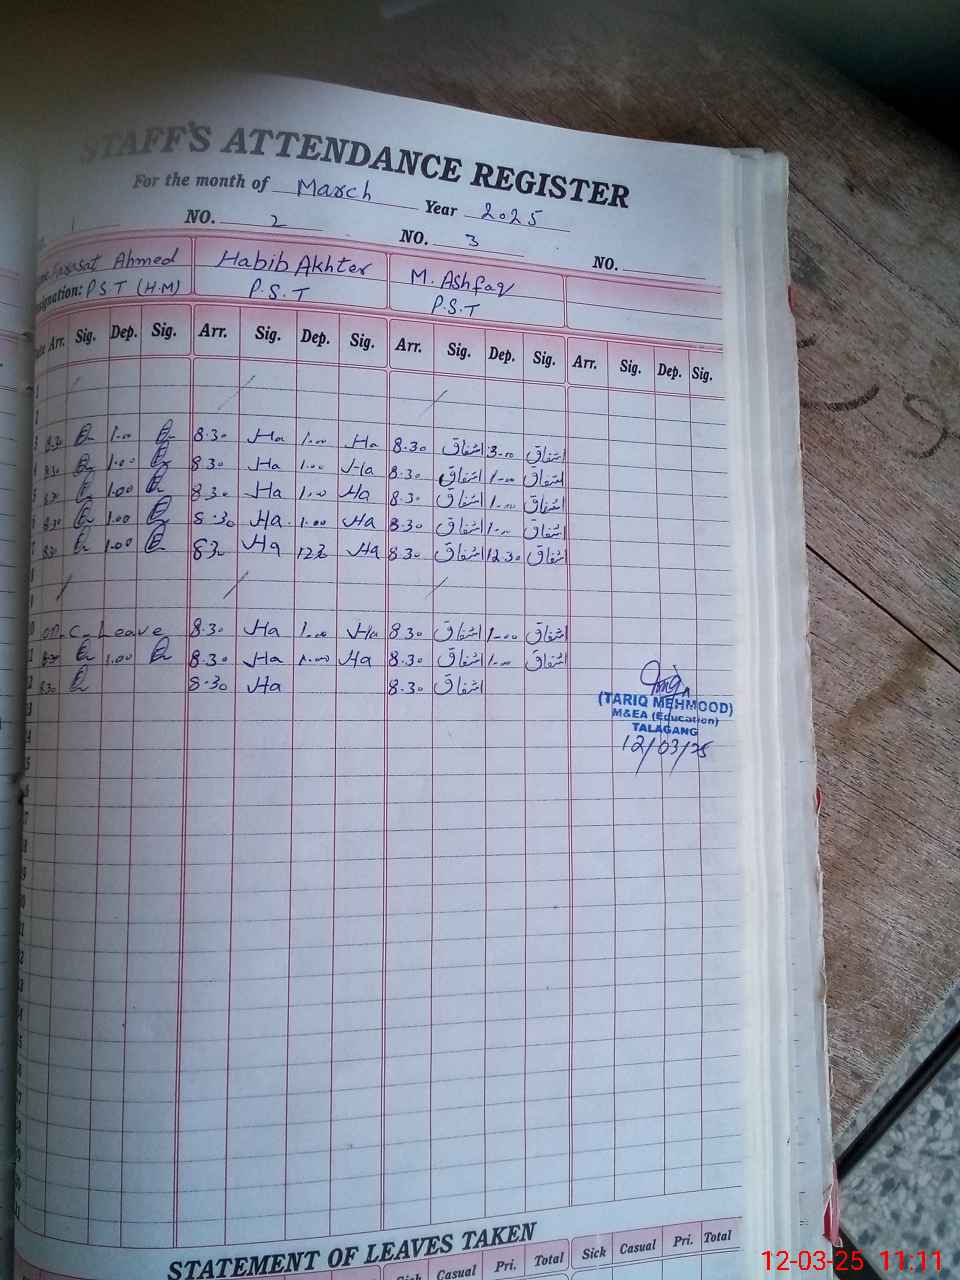 STAFF'S ATTENDANCE REGISTER
For the month of March Year 2025
1 NO. 2 NO. 3 NO.
Ahmed Habib Akhter M. Ashfaq
Designation: P.S.T (H.M) P.S.T P.S.T
Arr. Sig. Dep. Sig. Arr. Sig. Dep. Sig. Arr. Sig. Dep. Sig. Arr. Sig. Dep. Sig.
8.30 1.00 8.30 Ha 1.00 Ha 8.30 اشفاق 3.00 اشفاق
8.30 1.00 8.30 Ha 1.00 Ha 8.30 اشفاق 1.00 اشفاق
8.30 1.00 8.30 Ha 1.00 Ha 8.30 اشفاق 1.00 اشفاق
8.30 1.00 8.30 Ha 1.00 Ha 8.30 اشفاق 1.00 اشفاق
8.30 1.00 Ha Ha 8.30 اشفاق 12.30 اشفاق
on C-Leave 8.30 Ha 1.00 Ha 8.30 اشفاق 1.00 اشفاق
8.30 1.00 8.30 Ha 1.00 Ha 8.30 اشفاق 1.00 اشفاق
8.30 8.30 Ha 8.30 اشفاق
(TARIQ MEHMOOD)
M&EA (Education)
TALAGANG
12/03/25
STATEMENT OF LEAVES TAKEN
Sick Casual Pri. Total Sick Casual Pri. Total
12-03-25 11:11